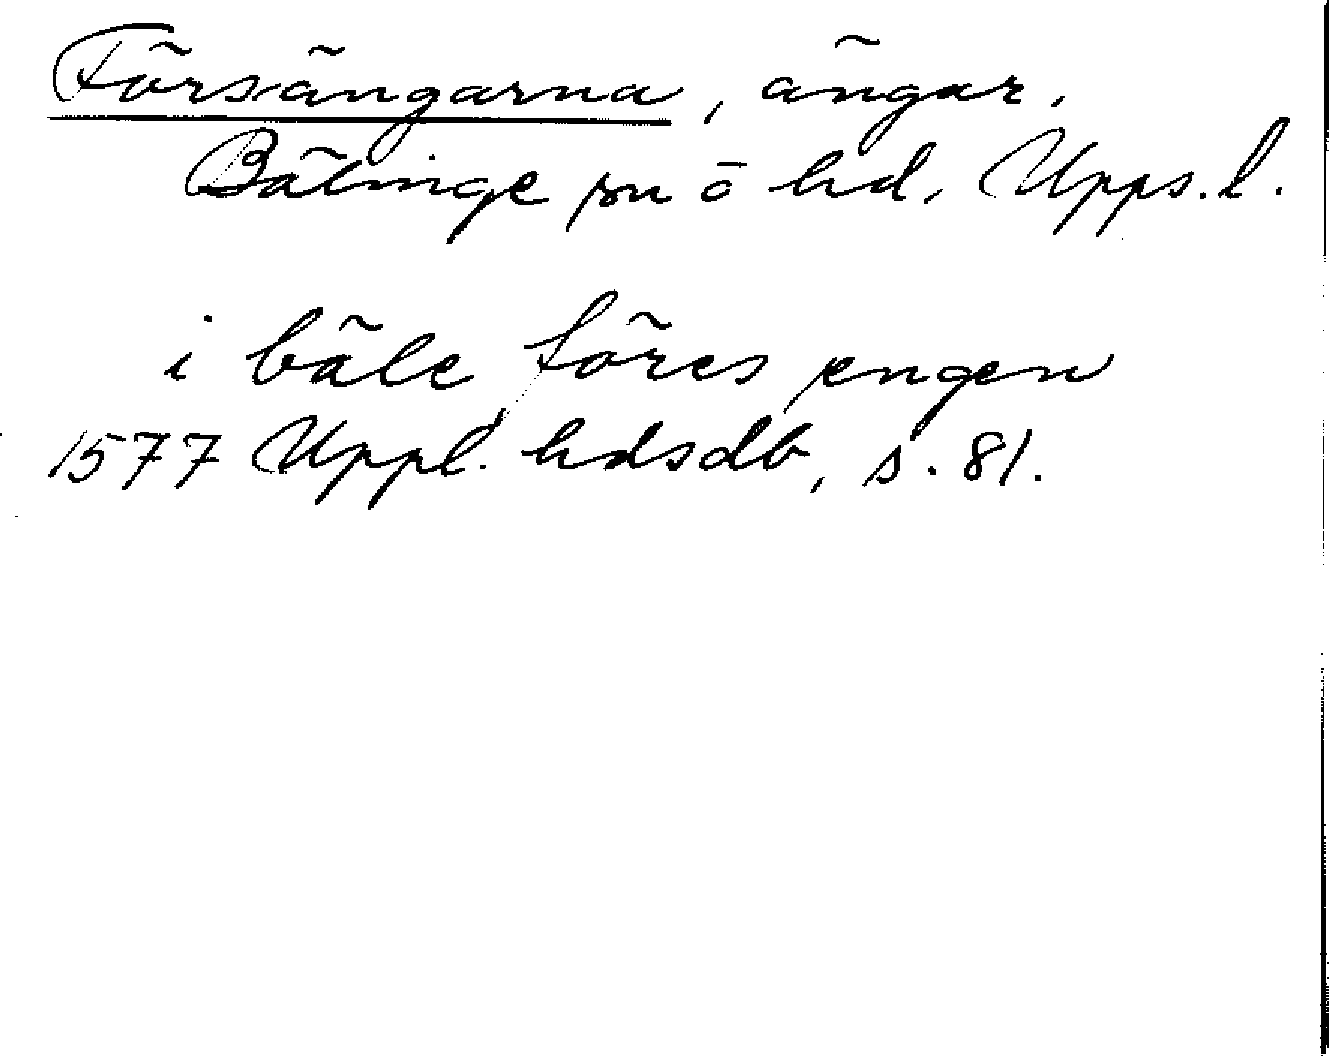 Försängarna, ängar.
Bälinge sn o hd, Upps. l.
i bäle föres engen
1577 Uppl. hdsdb, s. 81.